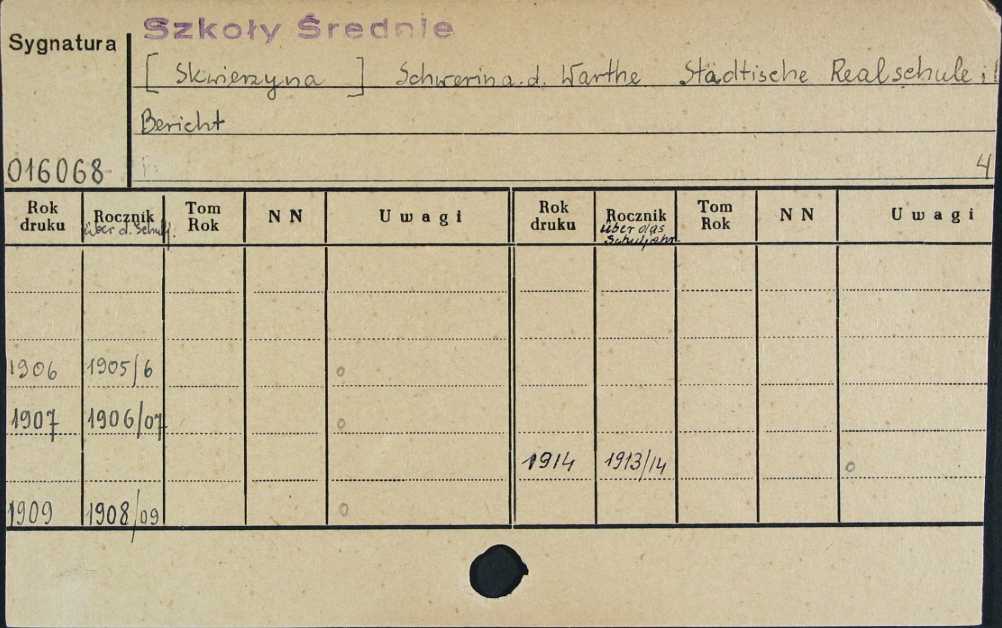 Szkoły Średnie
Sygnatura
[Skwierzyna] Schwerin a. d. Warthe Städtische Realschule
Bericht
016068 4
Rok druku Rocznik über d. Schulj. Tom Rok N N Uwagi Rok druku Rocznik über das Schuljahr Tom Rok N N Uwagi
1906 1905/6 o
1907 1906/07 o
1914 1913/14 o
1909 1908/09 o